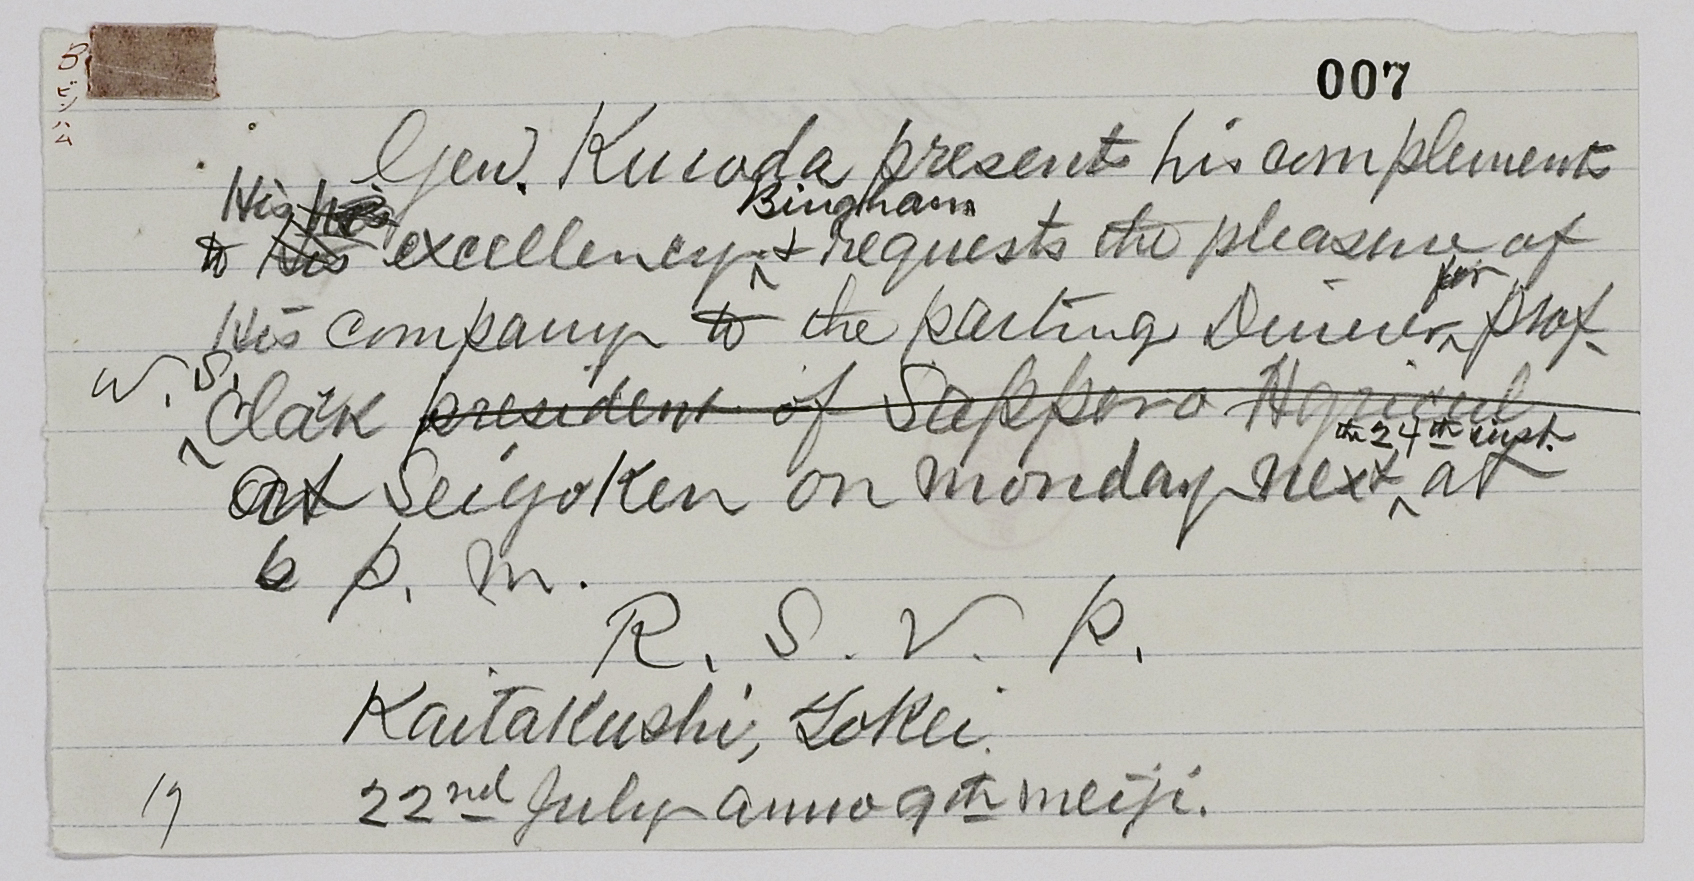 007
B ビンハム
Gen. Kuroda presents his complements
to His excellency Bingham & requests the pleasure of
His company to the parting Dinner for Prof.
W. S. Clark president of Sapporo Agricul
at Seiyoken on monday next the 24th inst. at
6 p. m.
R. S. V. P.
Kaitakushi, Tokei.
22nd July anno 9th meiji.
17